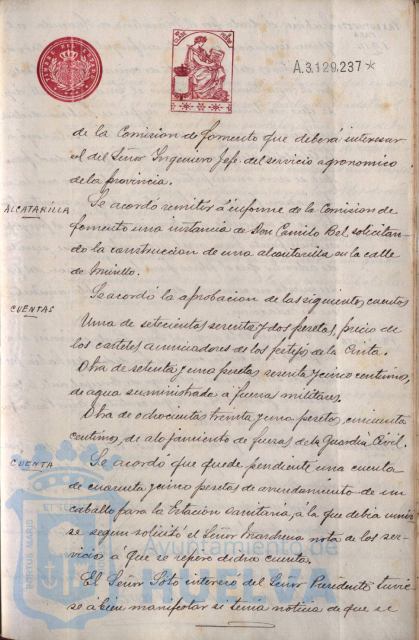 A.3.129.237*
de la Comision de fomento que deberá interesar
el del Señor Ingeniero Jefe del servicio agronomico
de la provincia.
ALCATARILLA
Se acordó remitir á informe de la Comision de
fomento una instancia de Don Camilo Bel solicitan-
do la construccion de una alcantarilla en la calle
de Murillo.
Se acordó la aprobacion de las siguientes cuentas
CUENTAS
Una de setecientas sesenta y dos pesetas, precio de
los carteles anunciadores de los festejos de la Cinta.
Otra de setenta y una pesetas sesenta y cinco centimos,
de agua suministrada á fuerzas militares.
Otra de ochocientas treinta y una pesetas, cincuenta
centimos, de alojamiento de fuerzas de la Guardia Civil.
CUENTA
Se acordó que quede pendiente una cuenta
de cuarenta y cinco pesetas de arrendamiento de un
caballo para la Estacion sanitaria, á la que debia unir-
se segun solicitó el Señor Marchena nota de los ser-
vicios á que se refiere dicha cuenta.
El Señor Soto interesó del Señor Presidente tuvie-
se á bien manifestar si tenia noticia de que se
Ayuntamiento de
HUELVA